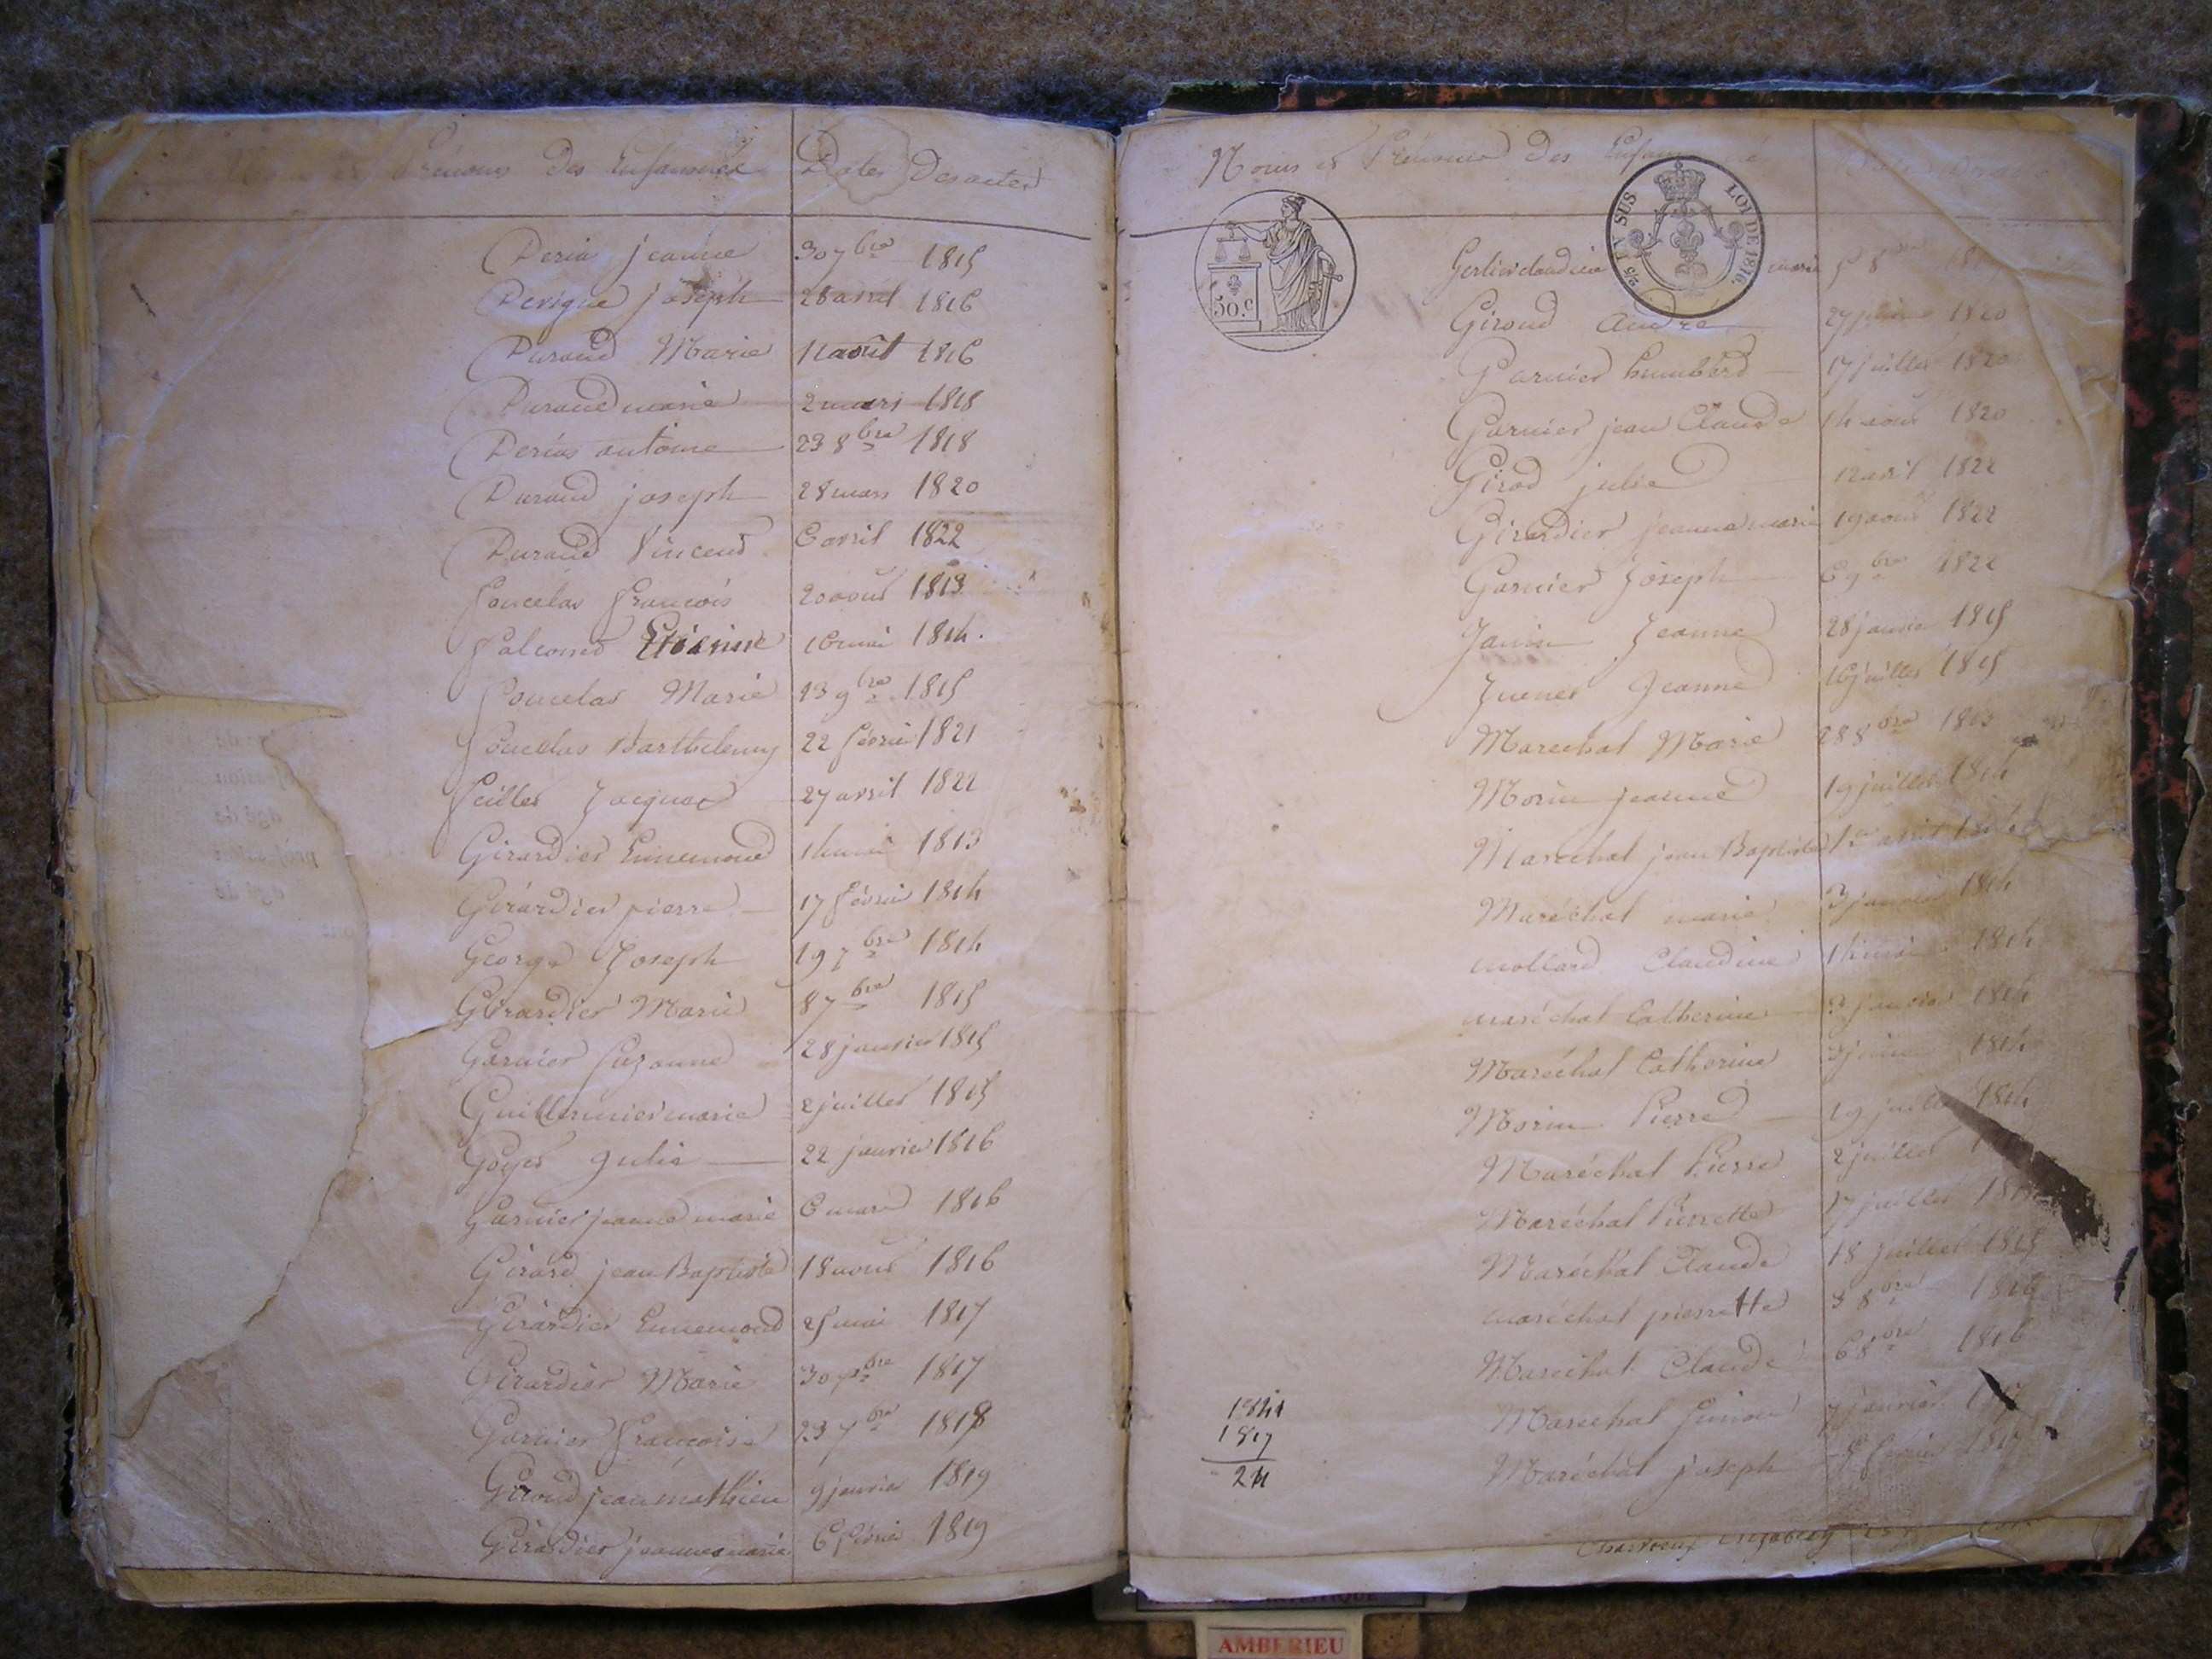 Prénoms Des Enfans
Dates Des actes
Perin jeanne 30 7bre 1815
Perigue joseph 28 avril 1816
Durand Marie 11 août 1816
Durand marie 2 mars 1818
antoine 23 8bre 1818
Durand joseph 28 mars 1820
Durand Vincend 6 avril 1822
foncelas françois 20 aout 1813
falconed Etienne 16 mai 1814.
foncelas Marie 23 9bre 1815
foncelas Barthelemy 22 février 1821
feilles Jacques 27 avril 1822
Girardier Ennemond 14 mai 1813
Girardier pierre 17 février 1814
George Joseph 19 7bre 1814
Girardier Marie 8 7bre 1815
Garnier Suzanne 28 janvier 1815
Guillermier marie 2 juillet 1815
Goyes Julie 22 janvier 1816
Garnier jeanne marie 6 mars 1816
Girard jean Baptiste 18 aout 1816
Girardier Ennemond 25 mai 1817
Girardier Marie 30 1817
Garnier françoise 23 7bre 1818
Giroud jean mathieu 9 janvier 1819
Girardier jeanne marie 6 février 1819
Noms et Prénoms Des Enfans
50.c
EN SUS
LOI DE 1816.
Gerlier claudine marie
Giroud André 1820
Garnier humberd 17 juillet 1820
Garnier jean Claude 14 aout 1820
Girod julie 12 avril 1822
Girardier jeanne marie 19 aout 1822
Garnier Joseph 6 9bre 1822
Janin Jeanne 28 janvier 1815
Juenes Jeanne 16 juillet 1815
Marechal Marie 28 8bre 1813
Morin jeanne 19 juillet 1814
Maréchal jean Baptiste 1er avril
Maréchal marie 3 janvier 1814
mollard Claudine 14 mai 1814
maréchal Catherine 3 janvier 1814
Maréchal Catherine 3 juin 1814
Morin Pierre 19 juillet 1814
Maréchal Pierre 2 juillet
Maréchal Pierrette 17 juillet
Maréchal Claude 18 juillet 1815
maréchal pierrette 3 8bre 1816
Maréchal Claude 6 8bre 1816
Maréchal janvier
Maréchal joseph février 1817
1841
1817
24
AMBERIEU